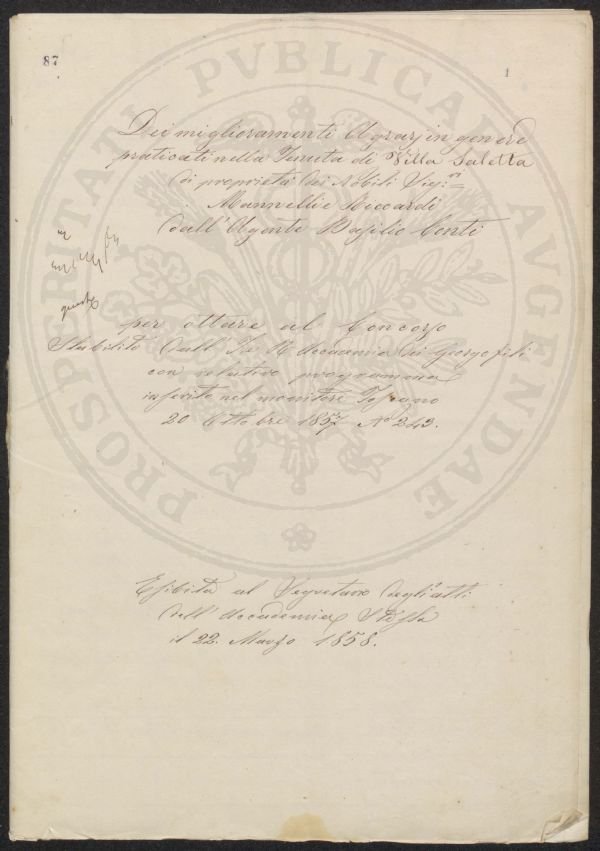 87
1
Dei miglioramenti Agrarj in genere
praticati nella Tenuta di Villa Saletta
di proprietà dei Nobili Sigri
Mannelli e Riccardi
dall'Agente Basilio Conti
questo
per ottare al Concorso
Stabilito dall' I e R Accademia dei Georgofili
con relativo programma
inserito nel monitore Toscano
20 Ottobre 1857 No 243.
Esibita al Segretario degli atti
dell' Accademia Stessa
il 22. Marzo 1858.
PROSPERITATI PVBLICAE AVGENDAE